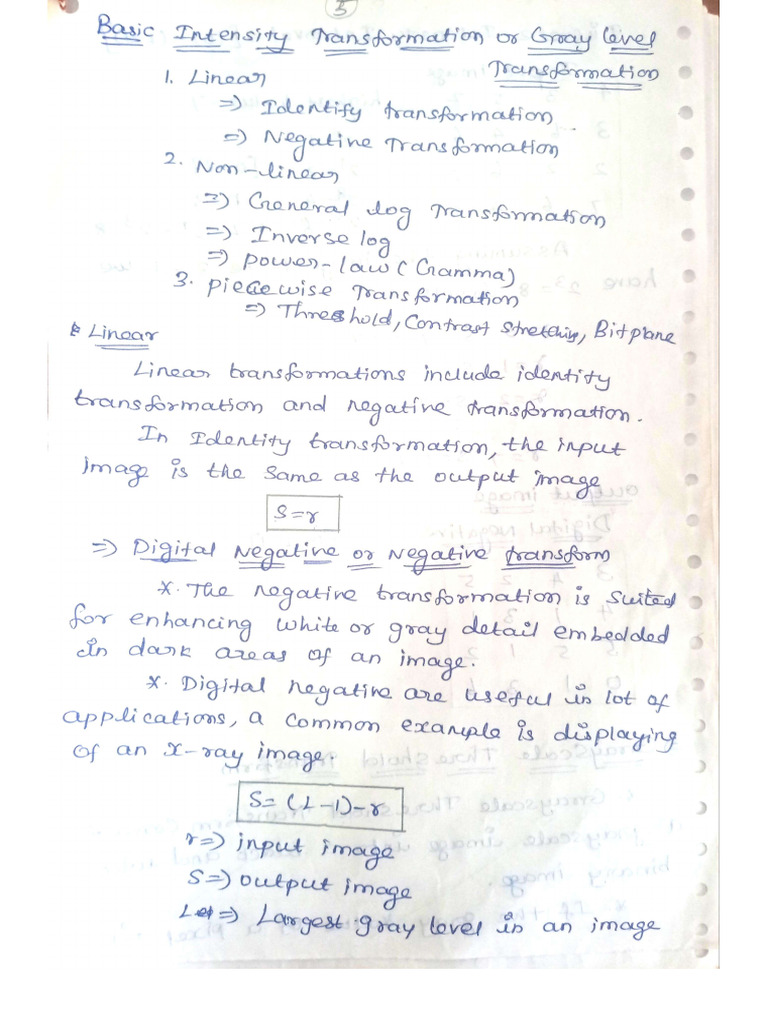 5
Basic Intensity Transformation or Gray level
Transformation
1. Linear
=) Identify transformation
=) Negative Transformation
2. Non-linear
=) General log Transformation
=) Inverse log
=) power-law (Gramma)
3. piecewise Transformation
=) Threshold, Contrast Stretching, Bitplane
Linear
Linear transformations include identity
transformation and negative transformation.
In Identity transformation, the input
image is the same as the output image
S=r
=) Digital Negative or Negative transform
*. The negative transformation is suited
for enhancing white or gray detail embedded
in dark areas of an image.
*. Digital negative are useful in lot of
applications, a common example is displaying
of an x-ray image.
S= (L-1)-r
r=) input image
S=) output image
L=) Largest gray level in an image